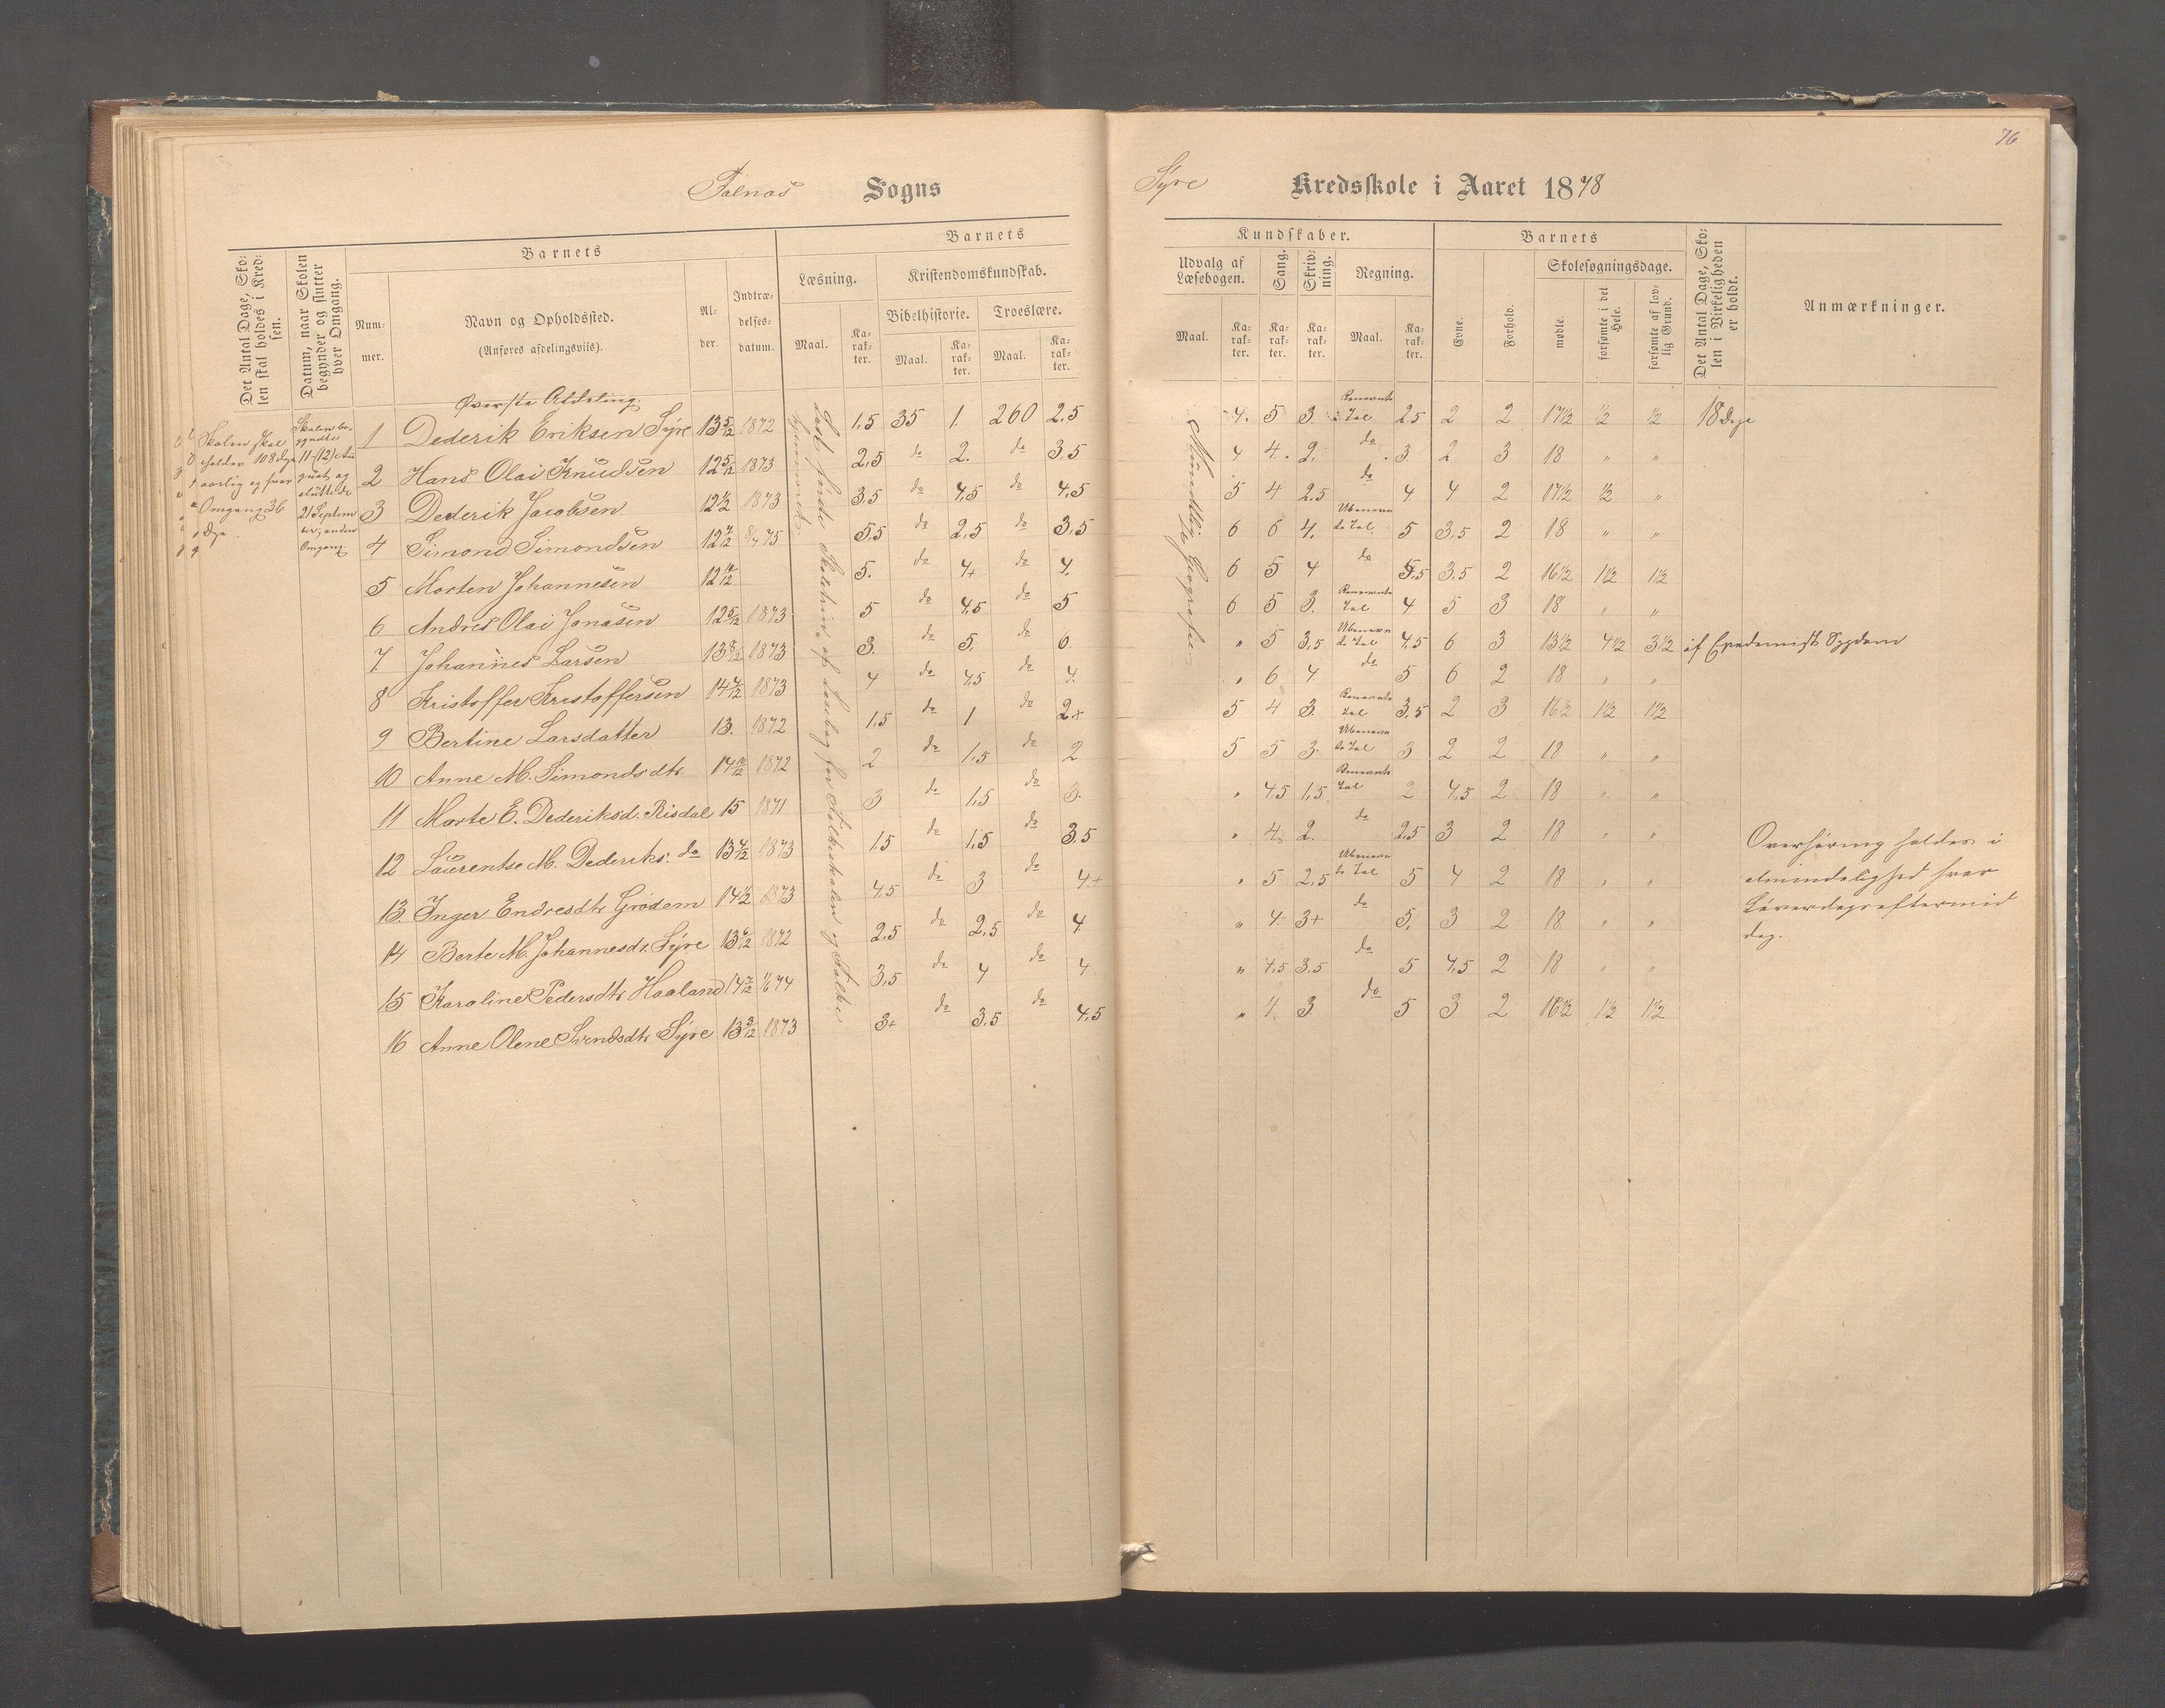 76
Falnæs Sogns
Syre Kredsskole i Aaret 1878
Det Antal Dage, Skolen skal holdes i Kredsen.
Datum, naar Skolen begynder og slutter hver Omgang.
Barnets
Nummer.
Navn og Opholdssted.
(Anføres afdelingsviis).
Alder.
Indtrædelsesdatum.
Barnets
Læsning.
Maal.
Karakter.
Kristendomskundskab.
Bibelhistorie.
Maal.
Karakter.
Troeslære.
Maal.
Karakter.
Kundskaber.
Udvalg af Læsebogen.
Maal.
Karakter.
Sang.
Karakter.
Skrivning.
Karakter.
Regning.
Maal.
Karakter.
Barnets
Evne.
Forhold.
Skolesøgningsdage.
mødte.
forsømte i det Hele.
forsømte af lovlig Grund.
Det Antal Dage, Skolen i Virkeligheden er holdt.
Anmærkninger.
Øverste Afdeling.
Skolen skal
holdes 108 dage
aarlig og hver
Omgang 36
dage.
Skolen be-
gyndte
11-(12) Au
gust og
sluttede
21 Septem
ber; anden
Omgang
Mundtlig Geografie
1 Dederik Eriksen Syre 13 5/12 1872 1,5 35 1. 260 2,5 4. 5 3. Benevnte Tal 2,5 2 2 17 1/2 1/2 1/2 18 dage
2 Hans Olai Knudsen 12 5/12 1873 2,5 do 2. do 3,5 4 4. 2. do 3. 2 3 18 " "
3 Dederik Jacobsen 12 1/2 1873 3,5 do 4,5 do 4,5 5 4 2,5 do 4 4 2 17 1/2 1/2 "
4 Simond Simondsen 12 7/12 75 5,5 do 2,5 do 3,5 6 6 4. Ubenevn de Tal 5 3,5 2 18 " "
5 Morten Johannesen 5. do 4+ do 4. 6 5 4 do 5,5 3,5 2 16 1/2 1 1/2 1 1/2
6 Andres Olai Jonasen 12 5/12 1873 5 do 4,5 do 5 6 5 3. Benevnte Tal 4 5 3 18 " "
7. Johannes Larsen 13 8/12 1873 3. do 5. do 6. " 5 3,5 Ubenevn de Tal 4,5 6 3 13 1/2 4 1/2 3 1/2 af Epedemisk Sygdom
8 Kristoffer Kristoffersen 14 4/12 1873 4 do 4,5 do 4. " 6 4 do 5 6 2 18 " "
9 Bertine Larsdatter 13. 1872 1,5 do 1 do 2+ 5 4 3. Benevnte Tal 3,5 2 3 16 1/2 1 1/2 1 1/2
10 Anne M. Simondsdtr. 1872 2 do 1,5 do 2 5 5 3. Ubenevn de Tal 3 2 2 18 " "
11 Marte E. Dederiksd. Risdal 15 1871 3 do 1,5 do 3. " 4,5 1,5 Benevnte Tal 2 4,5 2 18 " "
12 Laurentse M. Dederiks: do 13 4/12 1873 1,5 do 1,5 do 3,5 " 4. 2. do 2,5 3 2 18 " "
13. Inger Endresdtr Grødem 14 1/2 1873 4,5 do 3 do 4+ " 5 2,5 Ubenevn de Tal 5 4 2 18 " "
14 Berte M. Johannesdt. Syre 13 6/12 1872 2,5 do 2,5 do 4 " 4. 3+ do 5. 3 2 18 " "
15 Karoline Pedersdtr Haaland 14 7/12 74 3,5 do 4 do 4 " 4,5 3,5 do 5 4,5 2 18 " "
16 Anne Olene Svendsdtr Syre 13 3/12 1873 3+ do 3,5 do 4,5 " 4. 3. do 5 3 2 16 1/2 1 1/2 1 1/2
Overhøring holdes i
almindelighed hver
Løverdagseftermid
dag.